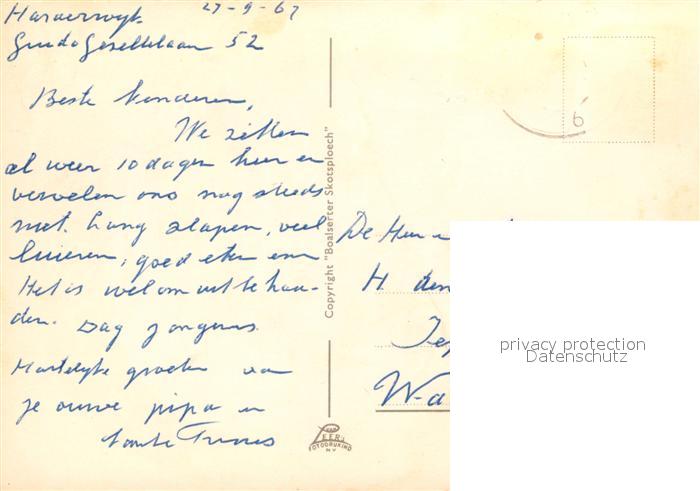 Harderwijk 27-9-67
Guido Gezellelaan 52
Beste kinderen,
We zitten
al weer 10 dagen hier en
vervelen ons nog steeds
niet. Lang slapen, veel
luieren, goed eten enz
Het is wel om uit te hou-
den. Dag jongens.
Hartelijke groeten van
je ouwe pipa en
tante Truus
Copyright "Boalserter Skotsploech"
VAN LEER'S
FOTODRUKIND
N.V.
6
De Heer
H. den
W-a
privacy protection
Datenschutz